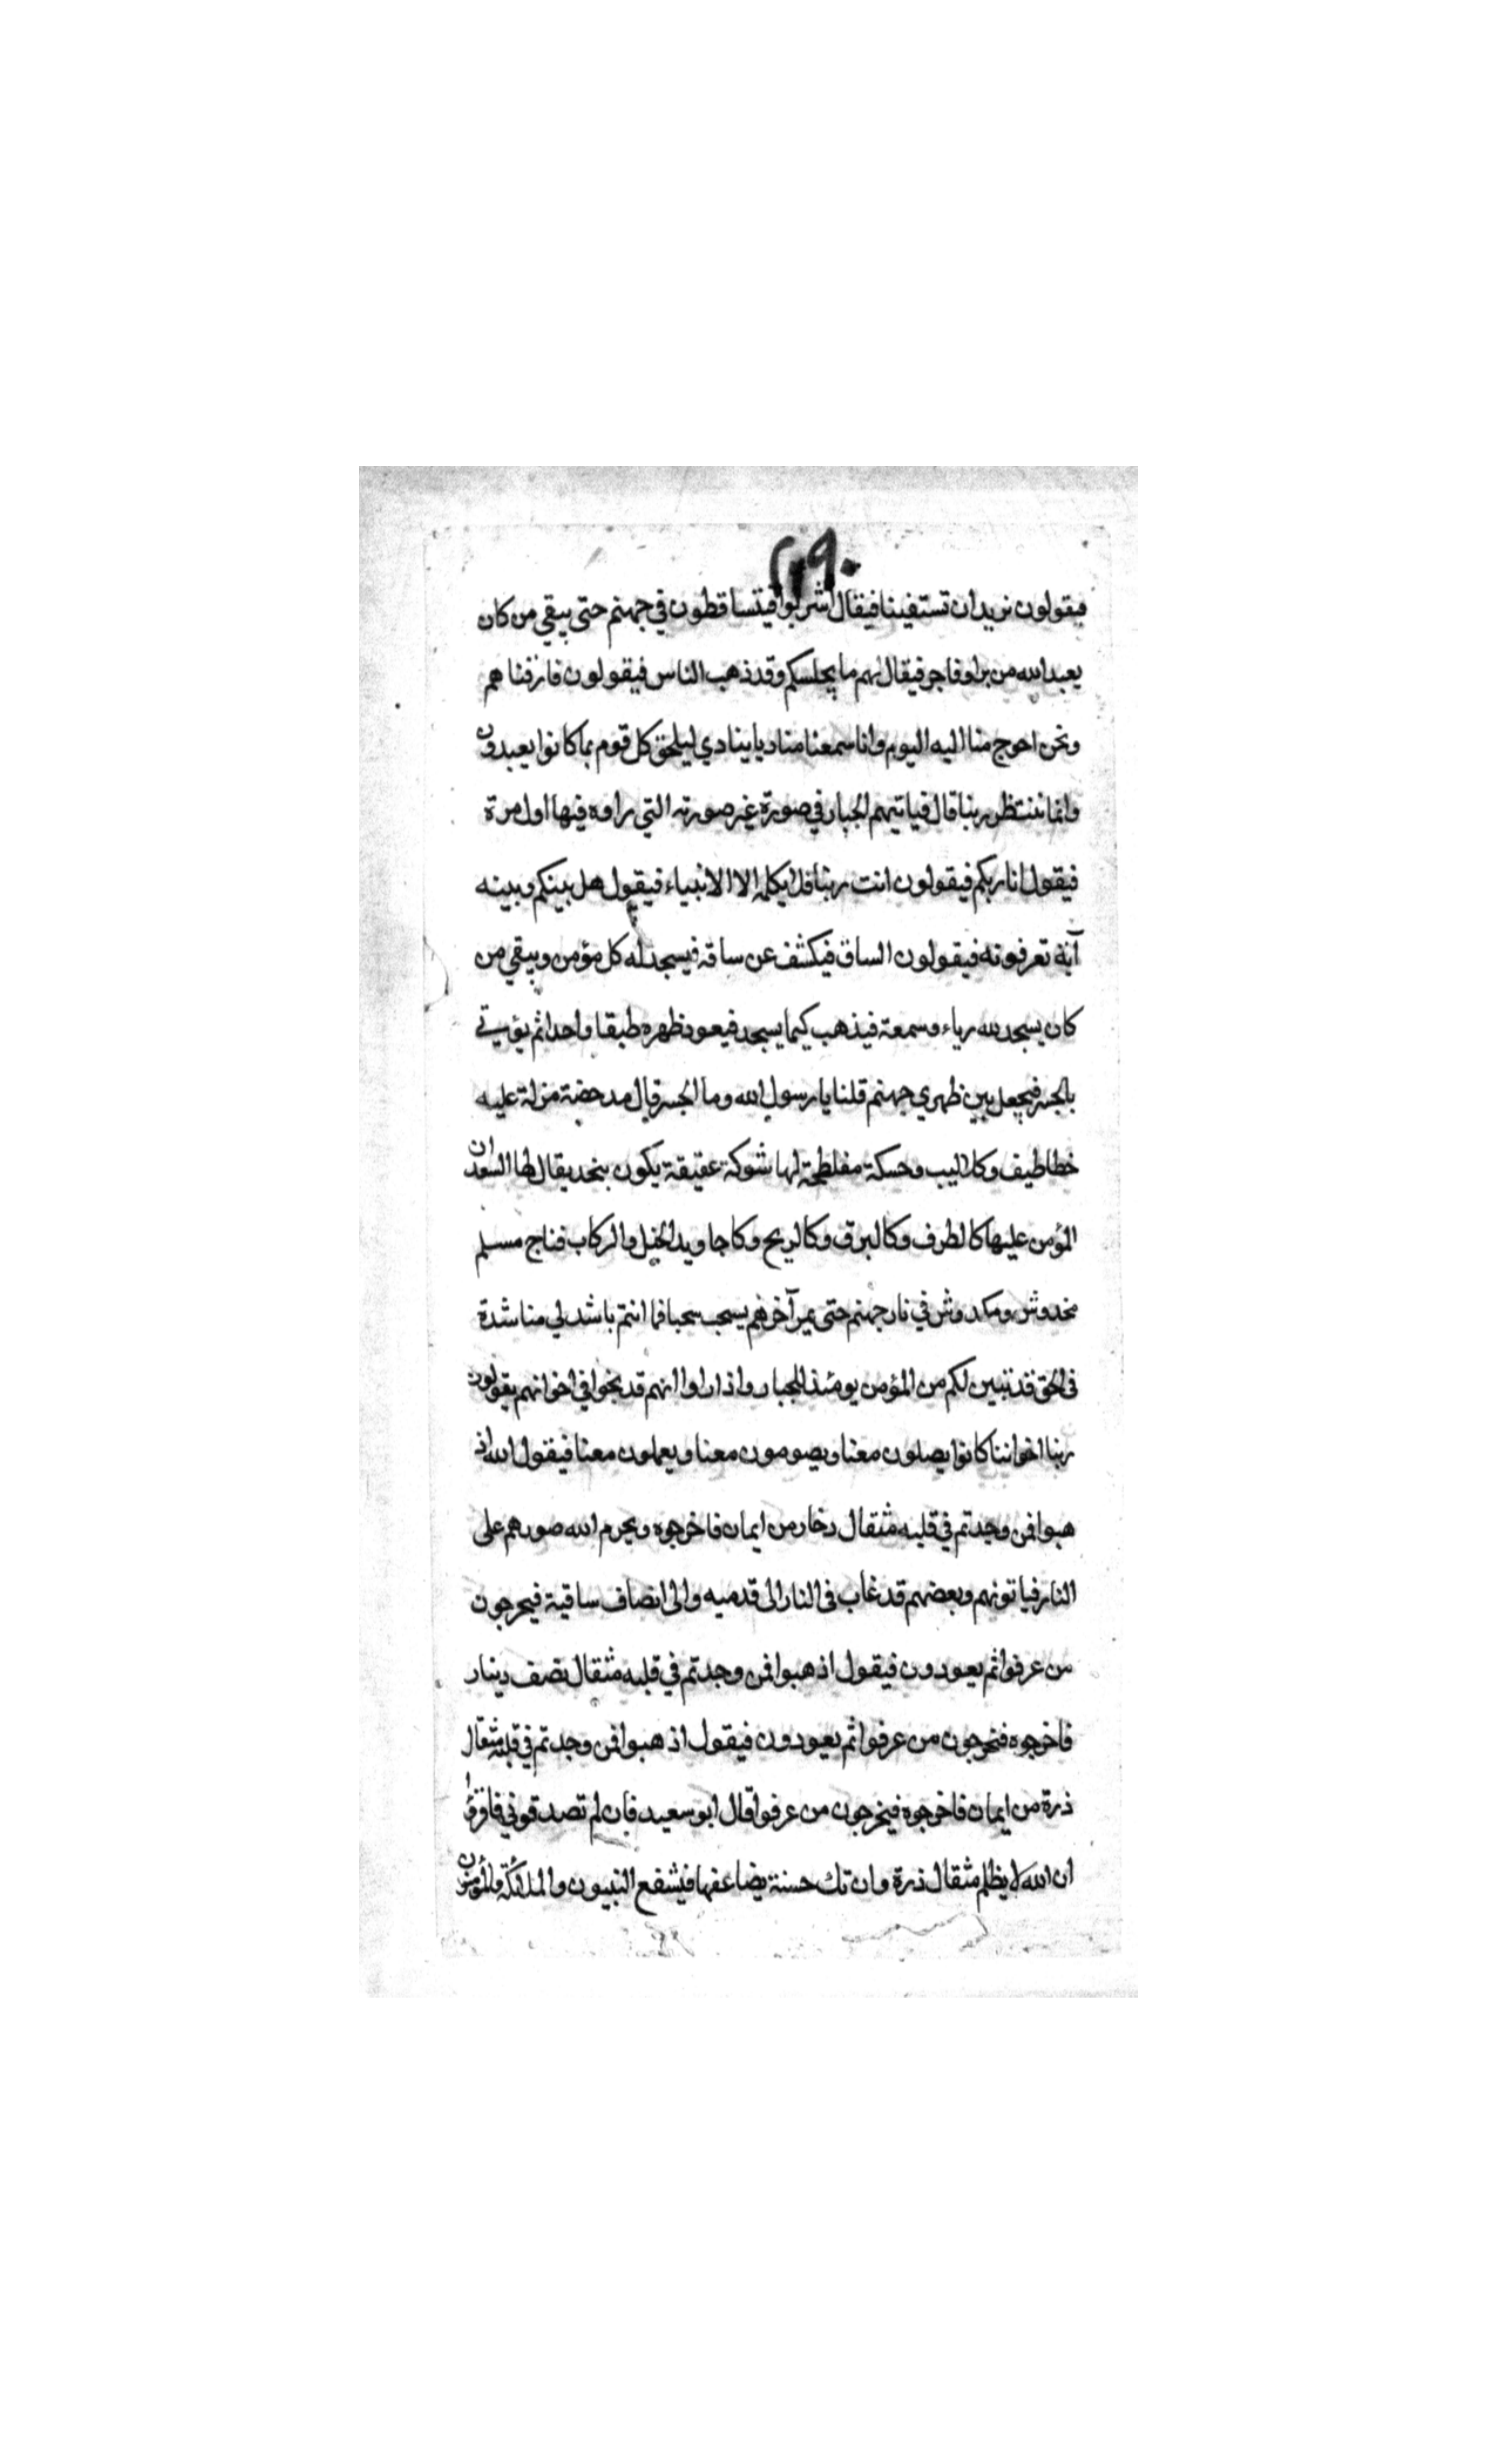 ٢٩٠
فيقولون نريد ان تستقينا فيقال اشربوا فيتساقطون في جهنم حتى يبقي من كان
يعبد الله من بر او فاجر فيقال لهم ما يجلسكم وقد ذهب الناس فيقولون فارقناهم
ونحن احوج منا اليه اليوم وانا سمعنا مناديا ينادي ليلحق كل قوم بما كانوا يعبدون
وانما ننتظر ربنا قال فياتيهم الجبار في صورة غير صورته التي راوه فيها اول مرة
فيقول انا ربكم فيقولون انت ربنا فلا يكلمه الا الانبياء فيقول هل بينكم وبينه
آية تعرفونه فيقولون الساق فيكشف عن ساقه فيسجد له كل مؤمن ويبقي من
كان يسجد لله رياء وسمعة فيذهب كيما يسجد فيعود ظهره طبقا واحدا ثم يؤتي
بالجسر فيجعل بين ظهري جهنم قلنا يا رسول الله وما الجسر قال مدحضة مزلة عليه
خطاطيف وكلاليب وحسكة مفلطحة لها شوكة عقيقة يكون بنجد يقال لها السعدان
المؤمن عليها كالطرف وكالبرق وكالريح وكاجاويد الخيل والركاب فناج مسلم
مخدوش ومكدوش في نار جهنم حتى يمر آخرهم يسحب سحبا فما انتم باشد لي مناشدة
في الحق قد تبين لكم من المؤمن يومئذ للجبار واذا راوا انهم قد نجوا في اخوانهم يقولون
ربنا اخواننا كانوا يصلون معنا ويصومون معنا ويعملون معنا فيقول الله اذ
هبوا فمن وجدتم في قلبه مثقال دينار من ايمان فاخرجوه ويحرم الله صورهم على
النار فياتونهم وبعضهم قد غاب في النار الى قدميه والى انصاف ساقية فيخرجون
من عرفوا ثم يعودون فيقول اذهبوا فمن وجدتم في قلبه مثقال نصف دينار
فاخرجوه فيخرجون من عرفوا ثم يعودون فيقول اذهبوا فمن وجدتم في قلبه مثقال
ذرة من ايمان فاخرجوه فيخرجون من عرفوا قال ابو سعيد فان لم تصدقوني فاقرؤا
ان الله لا يظلم مثقال ذرة وان تك حسنة يضاعفها فيشفع النبيون والملائكة والمؤمنون